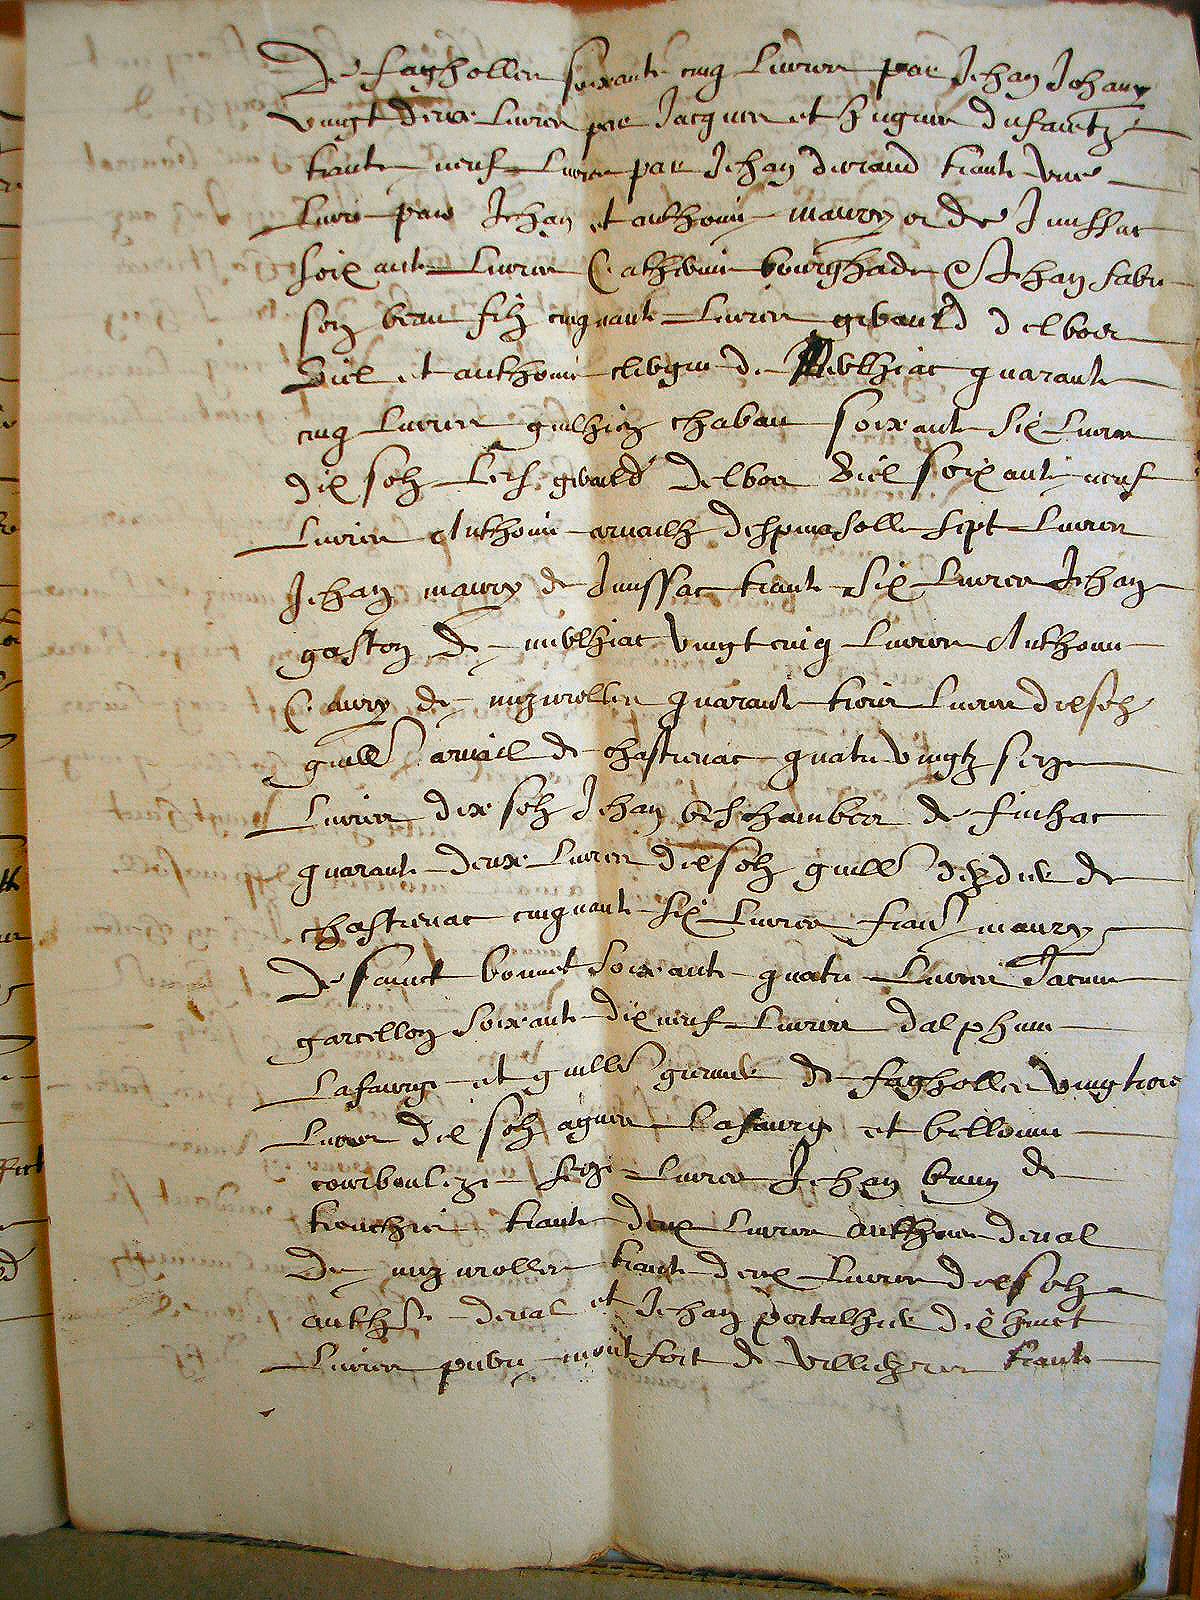 De fagholles soixante cinq livres par Jehan Johany
vingt deux livres par Jacques et hugues dufaietz
trante neuf livres par Jehan durand trante une
livre par Jehan et anthoine maurys de Jussac
soixante livres Catherine bourghade & Jehan fabre
son beau filz cinquante livres geraud delbos
viel et anthoine de nivlhiac quarante
cinq livres guilhien chaban soixante six livres
dix solz geraud delbos viel soixante neuf
livres Anthoine arnailh despinasolle sept livres
Jehan maury de Jussac trante six livres Jehan
gaston de nivlhiac vingt cinq livres Anthoine
Caury de quarante trois livres dix solz
guille arnail de chastrenac quatre vingtz seize
livres dix solz Jehan de finhac
quarante deux livres dix solz guille de
chastrenac cinquante six livres frans maury
De sainct bonnet soixante quatre livres Jacme
garcellon soixante dix neuf livres dalphine
Lafaurge et guille de fagholles vingt trois
livres dix solz agnes Lafaurge et bellonne
courbouleze seze livres Jehan brun de
tronchie trante deux livres anthoine deval
De trante deux livres dix solz
anthoine deval et Jehan portalhier dix huict
livres pierre montfort de trante